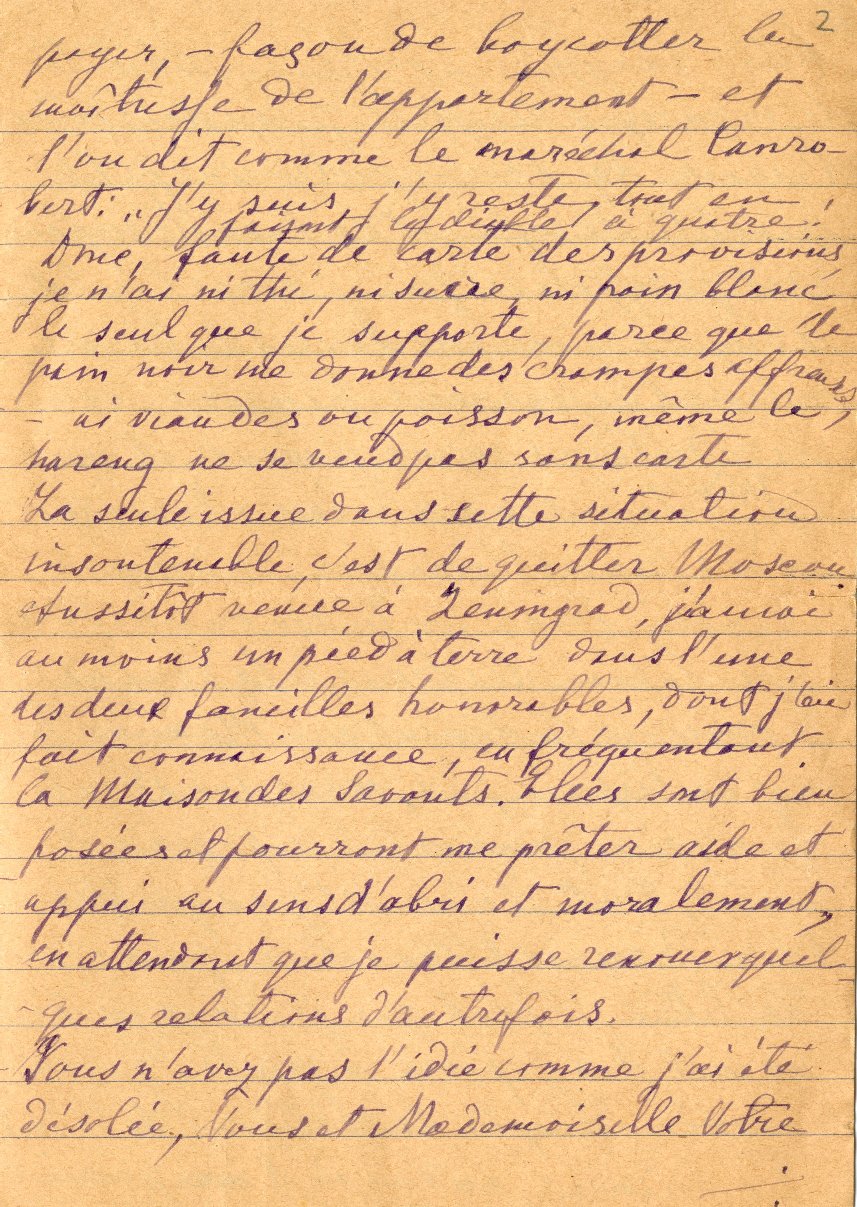 2
payer, – façon de boycotter la
maîtresse de l'appartement – et
l'on dit comme le maréchal Canro-
bert: „J'y suis, j'y reste, tout en
faisant le diable à quatre!
Donc, faute de carte des provisions
je n'ai ni thé, ni sucre, ni pain blanc
le seul que je supporte, parce que le
pain noir me donne des crampes affreuses,
– ni viandes ou poisson, même le
hareng ne se vend pas sans carte
La seule issue dans cette situation
insoutenable, c'est de quitter Moscou.
Aussitôt venue à Leningrad, j'aurai
au moins un pied à terre dans l'une
des deux familles honorables, dont j'ai
fait connaissance, en fréquentant
la Maison des Savants. Elles sont bien
posées et pourront me prêter aide et
appui au sens d'abri et moralement,
en attendant que je puisse renouer quel-
ques relations d'autrefois.
Vous n'avez pas l'idée comme j'ai été
désolée, Vous et Mademoiselle Votre